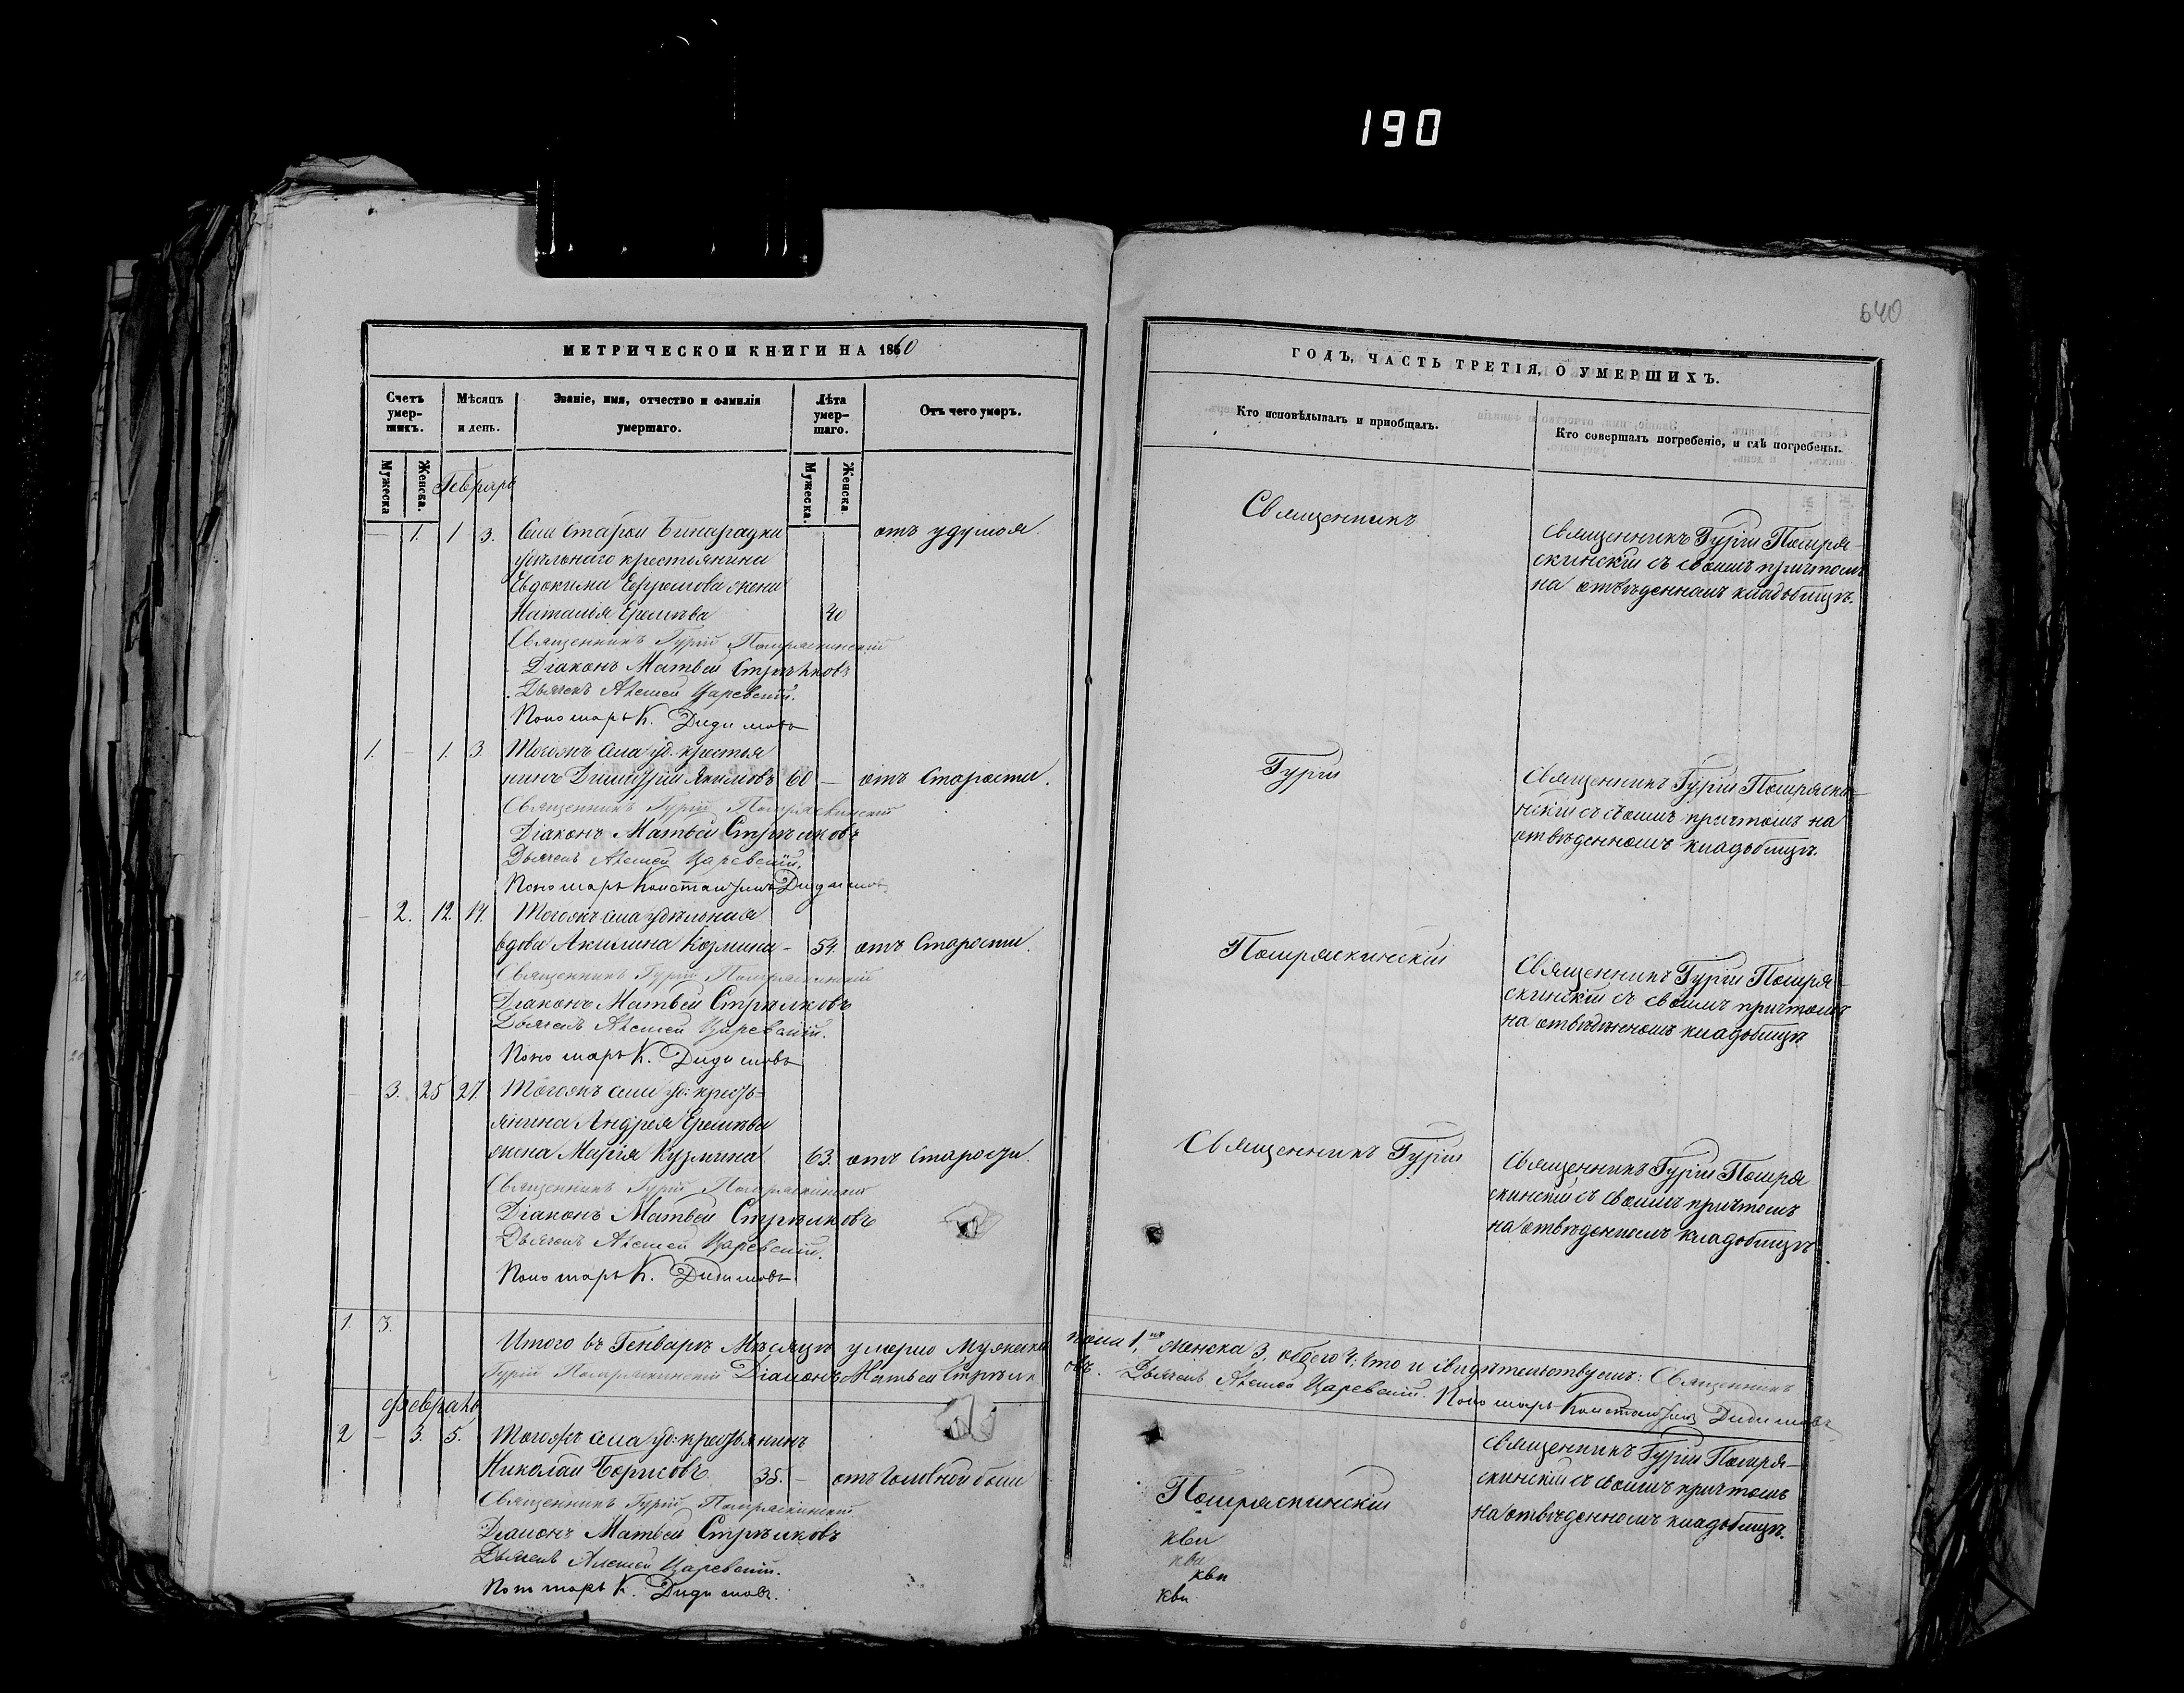 190
640
МЕТРИЧЕСКОЙ КНИГИ НА 1860
Счетъ умер-шихъ.
Мѣсяцъ и день.
Званіе, имя, отчество и фамилія умершаго.
Лѣта умер-шаго.
Отъ чего умеръ.
Мужеска
Женска.
Мужеска.
Женска
1. 1 3. Села Старой Бинарадки отъ удушья.
удѣльнаго крестьянина
Евдокима Ефремова жена
Наталья Еремѣева 40
Священникъ Гурій Помряскинскій
Діаконъ Матвей Стрѣлковъ
Дьячекъ Алексей Царевскій.
Пономарь К. Дидимовъ
1. – 1. 3 Тогожъ села уд. крестья
нинъ Димитрій Якимовъ 60 – отъ Старости.
Священникъ Гурій Помряскинскій
Діаконъ Матвей Стрѣлковъ
Дьячекъ Алексей Царевскій.
Пономарь Константинъ Дидимовъ
– 2. 12. 14. Тогожъ села удѣльная
вдова Акилина Козмина – 54. отъ Старости.
Священникъ Гурій Помряскинскій
Діаконъ Матвей Стрѣлковъ
Дьячекъ Алексей Царевскій.
Пономарь К. Дидимовъ
– 3. 25 27. Тогожъ села уд: кресть-
янина Андрея Еремѣева
жена Марія Кузмина 63. отъ Старости.
Священникъ Гурій Помряскинскій
Діаконъ Матвей Стрѣлковъ
Дьячекъ Алексей Царевскій.
Пономарь К. Дидимовъ
1. 3.
Итого въ Генварѣ Мѣсяцѣ умерло Мужеска
Гурій Помряскинскій Діаконъ Матвей Стрѣлк
Февраль
2 – 3. 5. Тогожъ села уд: крестьянинъ
Николай Борисовъ 35. – отъ головной боли
Священникъ Гурій Помряскинскій
Діаконъ Матвей Стрѣлковъ
Дьячекъ Алексей Царевскій.
Пономарь К. Дидимовъ.
ГОДЪ, ЧАСТЬ ТРЕТІЯ, О УМЕРШИХЪ.
Кто исповѣдывалъ и пріобщалъ.
Кто совершалъ погребеніе, и гдѣ погребены.
Священникъ
Священникъ Гурій Помря-
скинскій съ своимъ причтомъ
на отвѣденномъ кладбищѣ.
Гурій
Священникъ Гурій Помряски-
нскій съ своимъ причтомъ на
отвѣденномъ кладбищѣ.
Помряскинскій
Священникъ Гурій Помря-
скинскій съ своимъ причтомъ
на отвѣденномъ кладбищѣ
Священникъ Гурій
Священникъ Гурій Помря
скинскій съ своимъ причтомъ
на отвѣденномъ кладбищѣ
пола 1, женска 3, обоего 4; что и свидѣтельствуемъ: Священникъ
овъ. Дьячекъ Алексей Царевскій. Пономарь Константинъ Дидимовъ
Помряскинскій
Священникъ Гурій Помря-
скинскій съ своимъ причтомъ
на отвѣденномъ кладбищѣ.